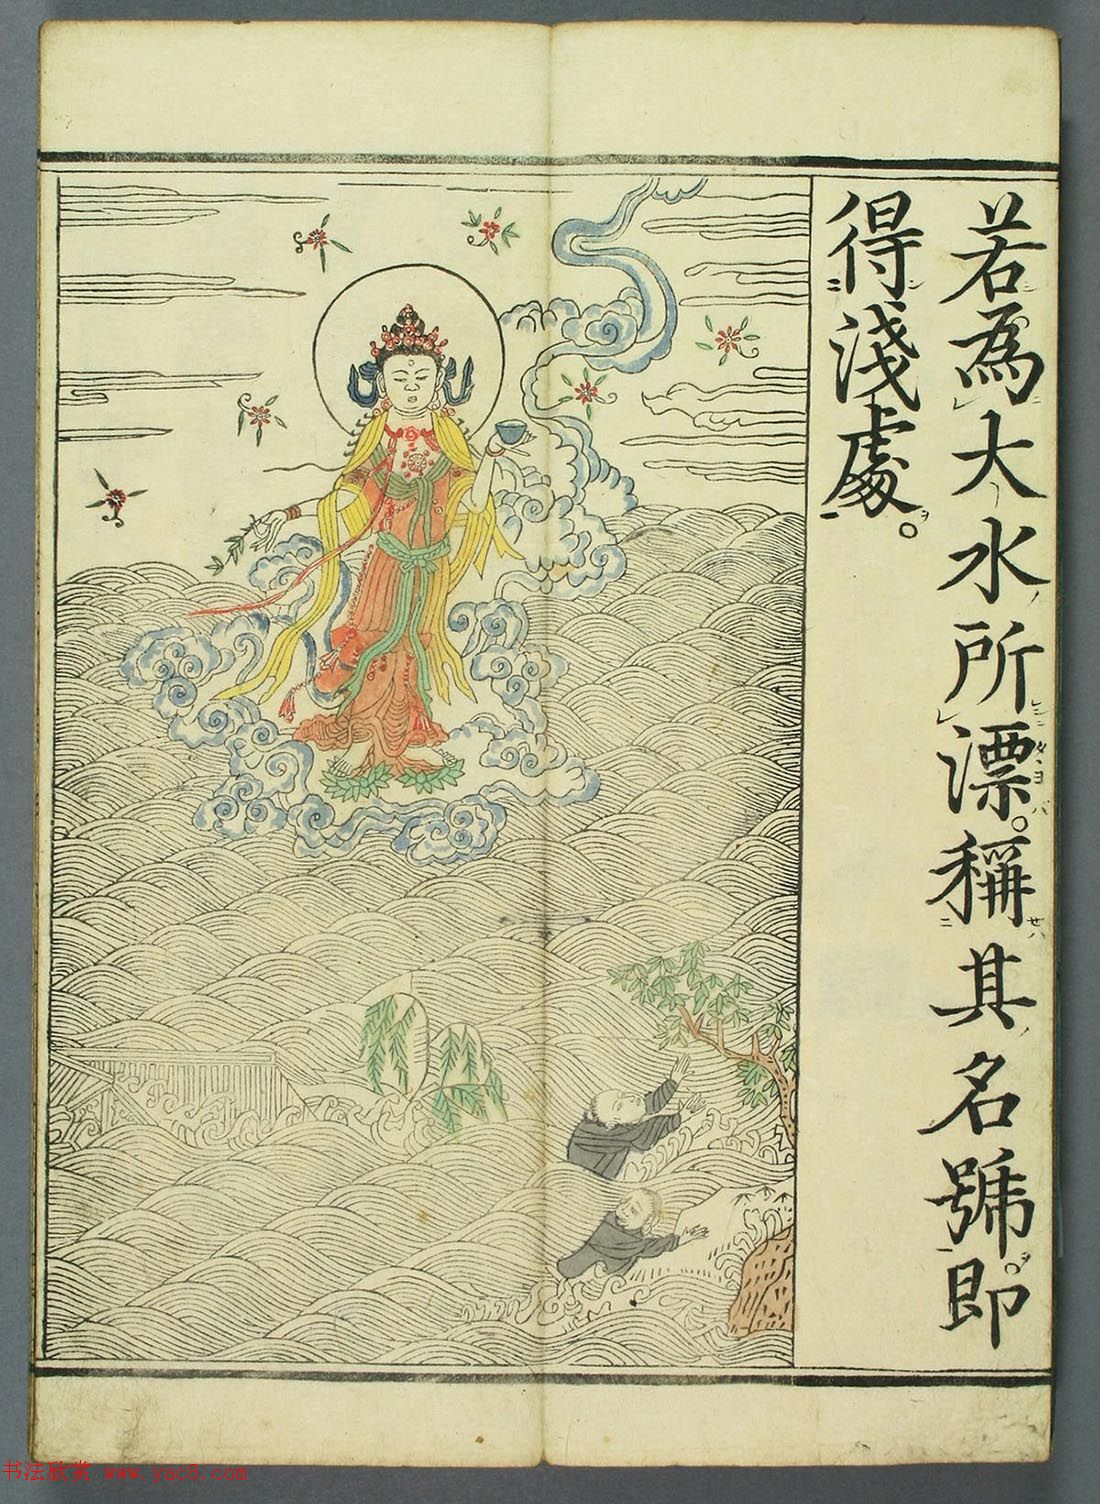 若為大水所漂。稱其名號即
得淺處。
书法欣赏 www.yac8.com